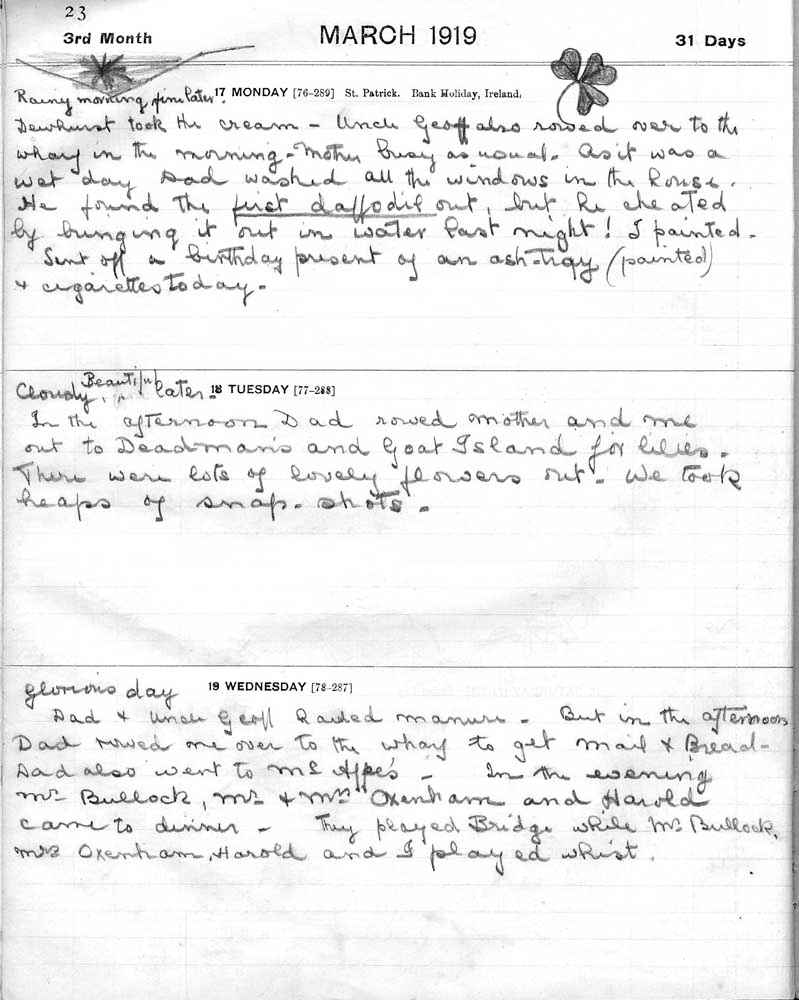 23
3rd Month MARCH 1919 31 Days
Rainy morning, fine later. 17 MONDAY [76-289] St. Patrick. Bank Holiday, Ireland.
Dewhurst took the cream - Uncle Geoff also rowed over to the
wharf in the morning - Mother busy as usual. As it was a
wet day Dad washed all the windows in the house.
He found the first daffodil out, but he cheated
by bringing it out in water last night! I painted.
Sent off a birthday present of an ash-tray (painted)
& cigarettes today.
Cloudy, Beautiful later. 18 TUESDAY [77-288]
In the afternoon Dad rowed mother and me
out to Deadman's and Goat Island for lilies.
There were lots of lovely flowers out. We took
heaps of snap-shots.
glorious day 19 WEDNESDAY [78-287]
Dad & Uncle Geoff hauled manure - But in the afternoon
Dad rowed me over to the wharf to get mail & Bread -
Dad also went to - In the evening
Mr Bullock, Mr & Mrs Oxenham and Harold
came to dinner - They played Bridge while Mr Bullock,
Mrs Oxenham, Harold and I played whist.